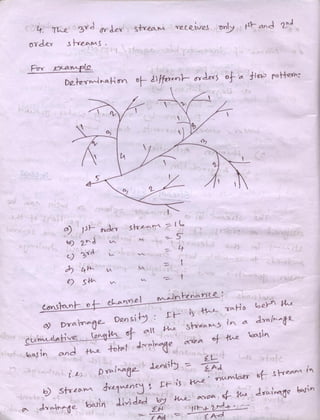 4. The 3rd order stream receives only 1st and 2nd
order streams.
For example
Determination of different orders of a flow pattern:
a) 1st order streams = 16
b) 2nd " " = 5
c) 3rd " " = 4
d) 4th " " = 1
e) 5th " " = 1
Constant of channel maintenance:
a) Drainage Density: It is the ratio betn the
cumulative length of all the streams in a drainage
basin and the total drainage area of the basin
i.e. Drainage density = ΣL
ΣAd
b) Stream frequency: It is the number of stream in
a drainage basin divided by the area of the drainage basin
ΣN
ΣAd